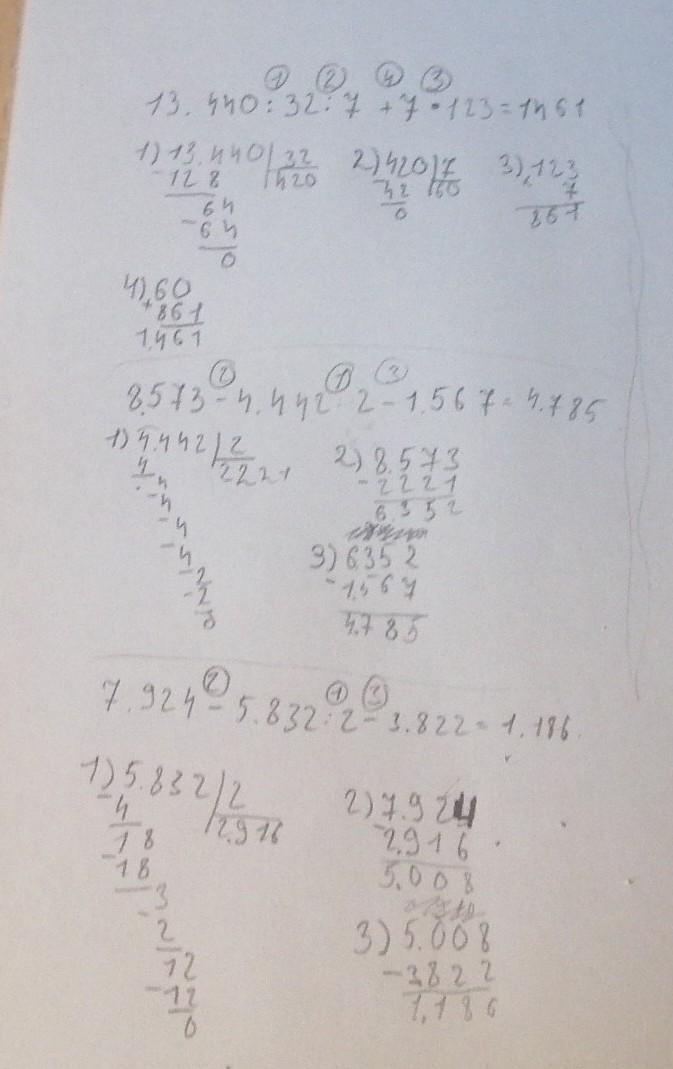 ① ② ④ ③
13.440:32:7 + 7 • 123 = 1461
1) 13.440 | 32 2) 420 | 7 3) 123
- 128 420 42 60 × 7
64 0 861
- 64
0
4) 60
+ 861
1.461
② ① ③
8.573 - 4.442 : 2 - 1.567 = 4.785
1) 4.442 | 2 2) 8.573
4 2221 - 2221
4 6.352
- 4
4 3) 6352
- 4 - 1.567
2 4.785
- 2
0
② ① ③
7.924 - 5.832 : 2 - 3.822 = 1.186
1) 5.832 | 2 2) 7.924
- 4 2.916 - 2.916
18 5.008
- 18
3 3) 5.008
- 2 - 3.822
12 1.186
- 12
0